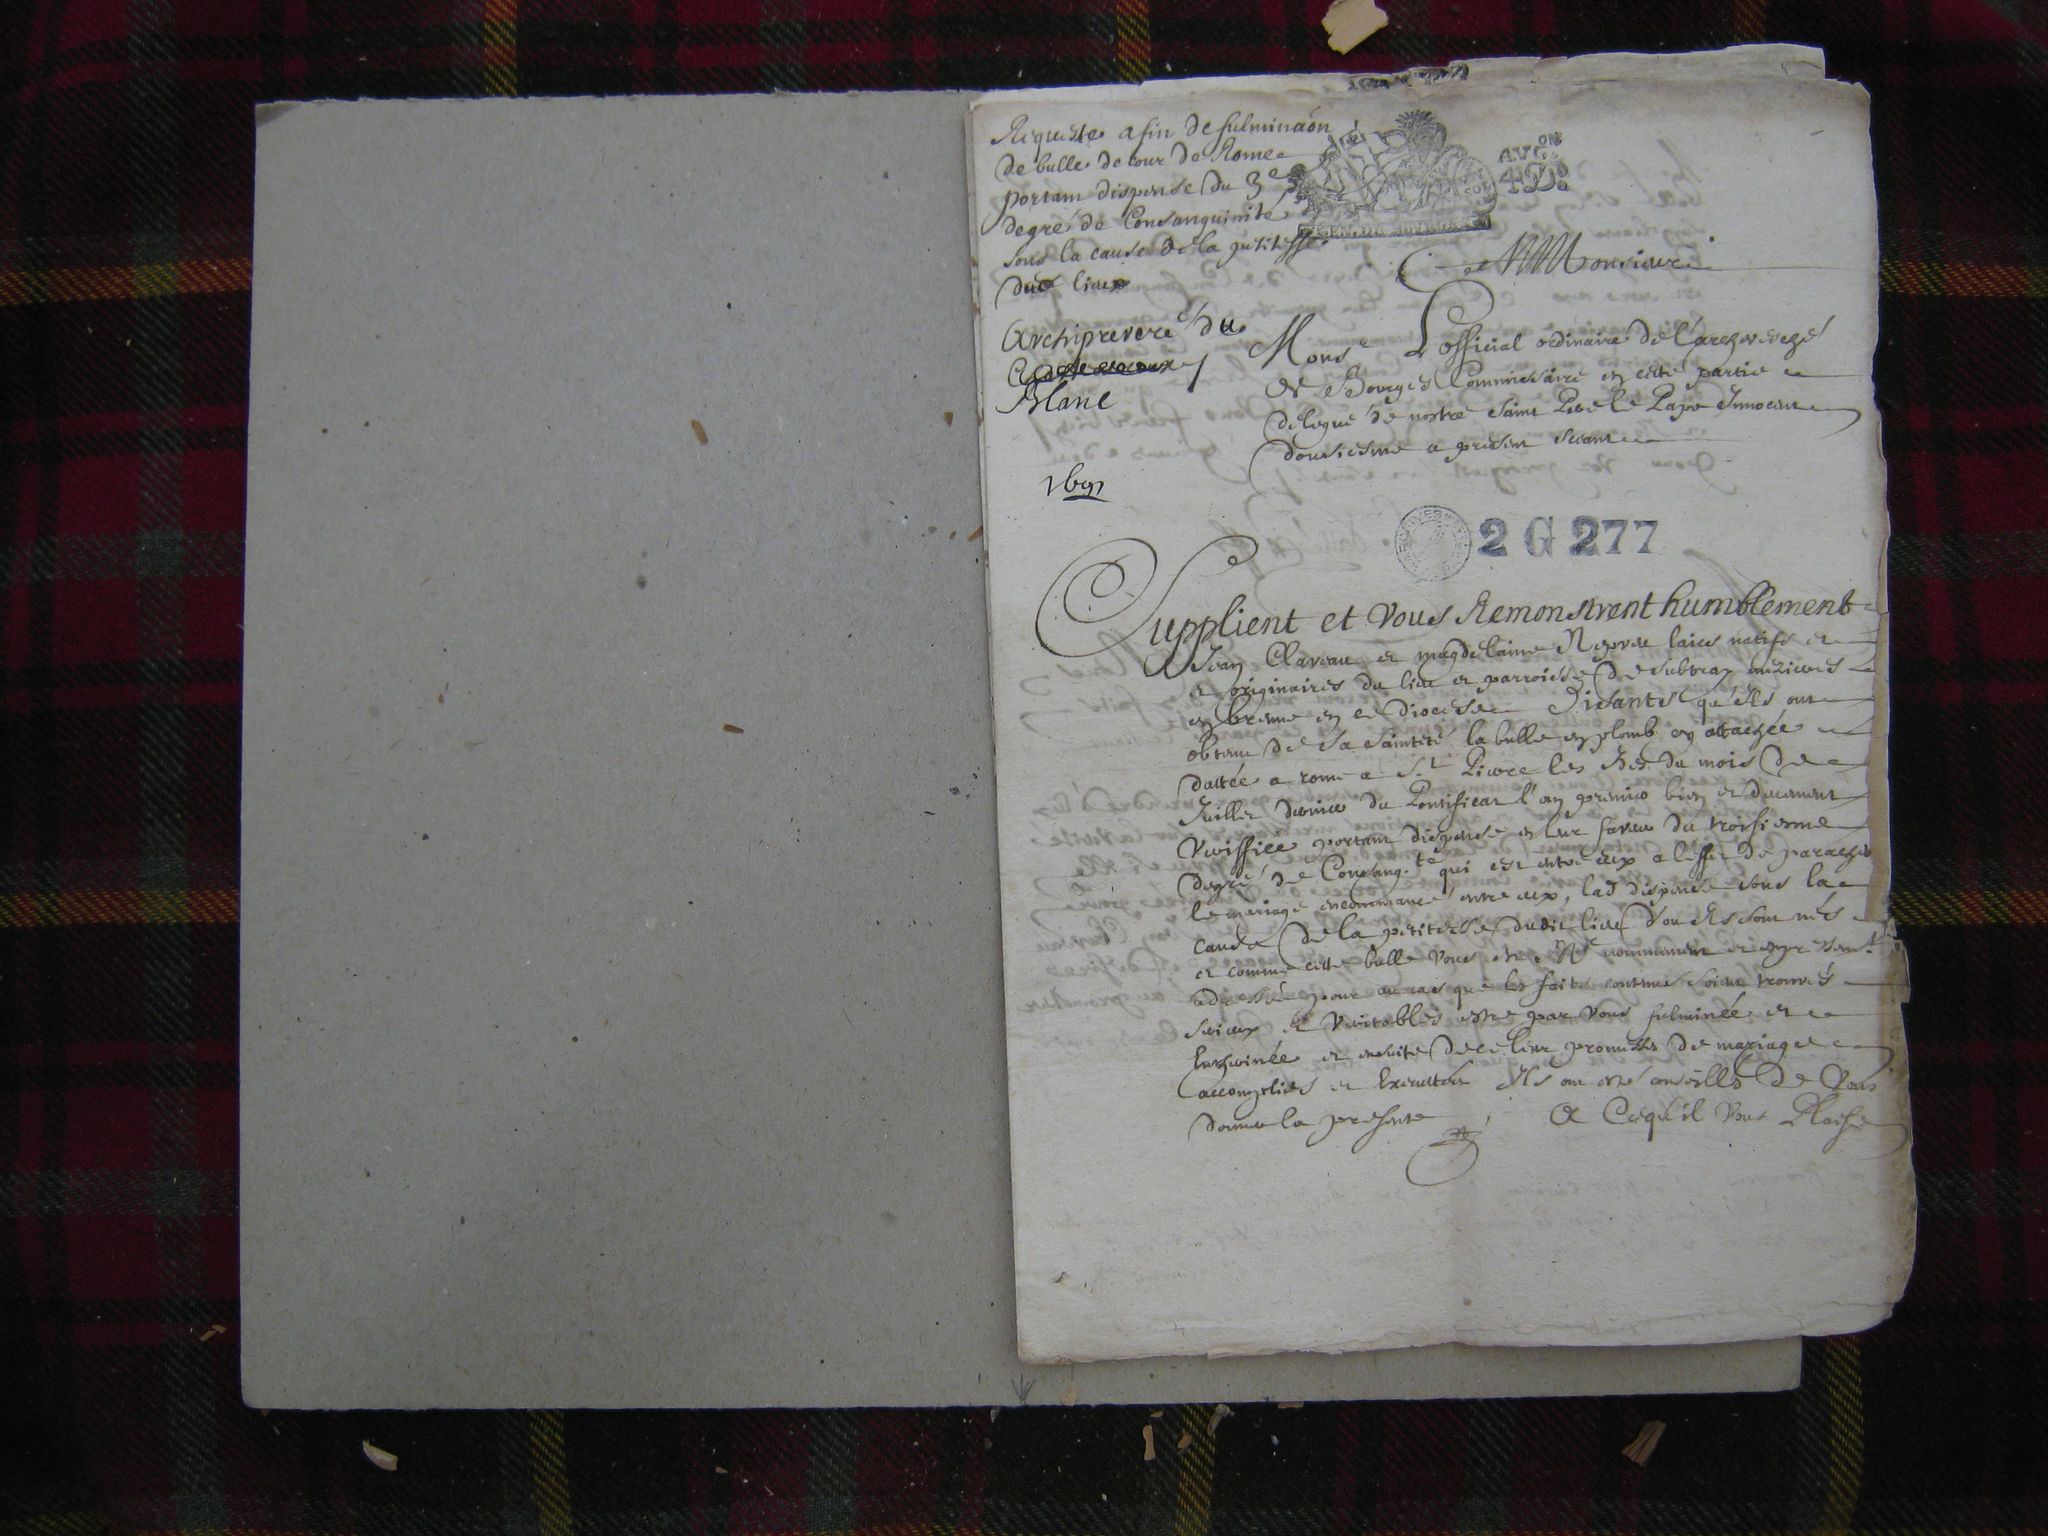 Requeste afin de fulminaôn
de bulle de cour de Rome
portant dispense du 3e
degré de Consanguinité
sous la cause de la petitesse
dud lieux
AVG.ON
4D.
Monsieur
Archiprevere du
Blanc
Monsr L'official ordinaire de l'archevesché
de Bourges Commissaire en cete partie
delegué de nostre Saint Pere le Pape Innocent
dousiesme a present seant
1691
2 G 277
Supplient et Vous Remonstrent humblement
Jean Claveau et magdelaine laics natifs et
et originaires du lieu et parroisse de Subtray mezieres
en brenne en ce Diocese Disants qu'ils ont
obtenu de sa sainteté la bulle en plomb cy attachée
dattée a rome a St Pierre les Ides du mois de
Juillet dernier du Pontificat l'an premier bien et duement
veriffiee portant dispense en leur faveur du troisieme
degré de Consang.té qui est entre eux a l'effet de parachever
le mariage encommancé entre eux, lad dispense sous la
cause de la petitesse dudit lieu d'ou ils sont nés
et comme cette bulle vous est nommement et
adressée pour au cas que les faits contenus soient trouvés
serieux et veritables estre par vous fulminée et
Entherinée et ensuite de ce leur promesses de mariage
accomplies et Executées Ils ont esté conseillés de Vous
donner la presente A Cequ'il Vous Plaise